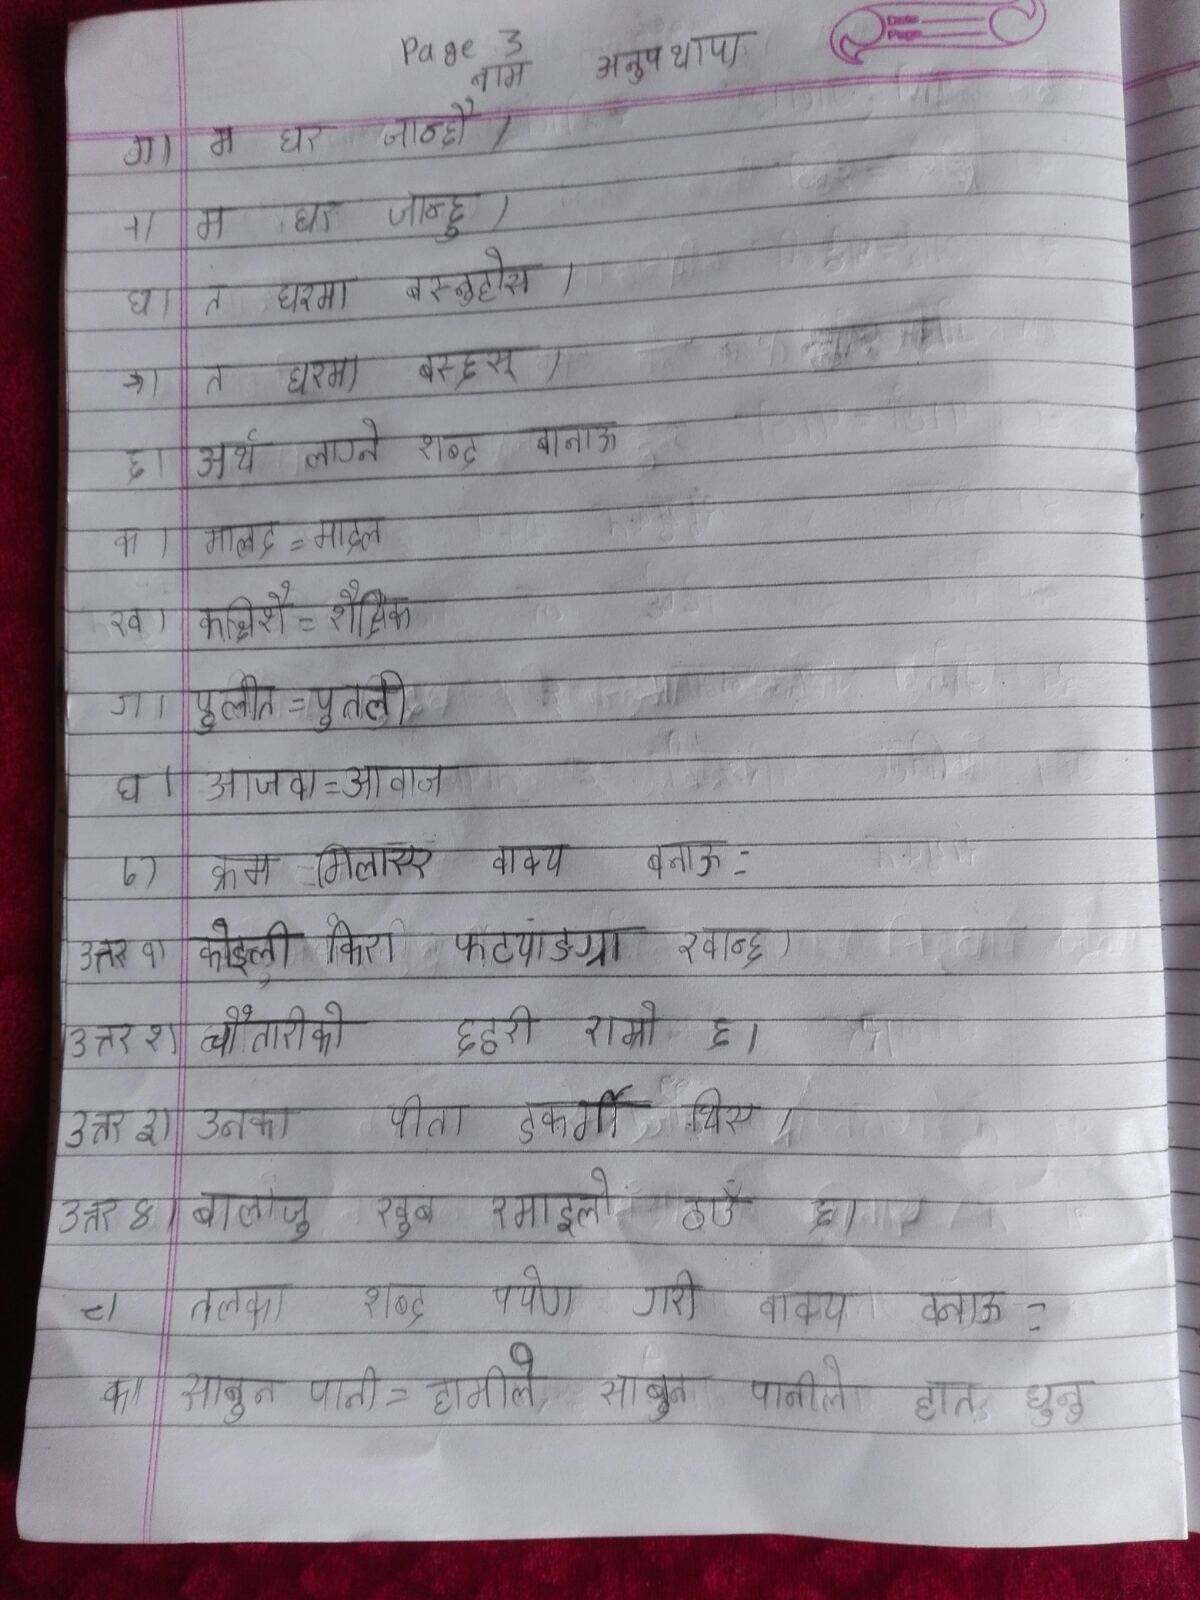 Date
Page
Page 3
नाम अनुप थापा
ग। म घर जान्छौ।
→। म घर जान्छु।
घ। त घरमा बस्नुहोस।
→। त घरमा बस्छस्।
६। अर्थ लाग्ने शब्द बानाऊ
क। मालद = मादल
ख। कक्षिशै = शैक्षिक
ग। पुलीत = पुतली
घ। आजवा = आवाज
७) क्रम मिलाएर वाक्य बनाऊ =
उत्तर १) कोइली किरा फटयाङग्रा खान्छ।
उत्तर २) चौतारीको छहरी राम्रो छ।
उत्तर ३) उनका पीता डकर्मी थिए।
उत्तर ४) बालाजु खुब रमाइलो ठाउँ छ।
८। तलका शब्द पयोग गरी वाक्य बनाऊ =
क। साबुन पानी = हामीले साबुन पानीले हात धुनु